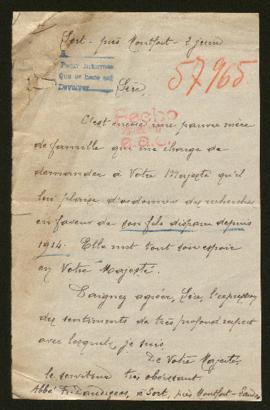 Sort - près Montfort - 2 juin
A
Pedir informes
Que se hace así
Devolver
57965
Sire,
Hecho
C'est encore une pauvre mère
de famille qui me charge de
demander à Votre Majesté qu'il
lui plaise d'ordonner des recherches
en faveur de son fils disparu depuis
1914. Elle met tout son espoir
en Votre Majesté.
Daignez agréer, Sire, l'expression
des sentiments de très profond respect
avec lesquels je suis
De Votre Majesté
le serviteur très obéissant
Abbé à Sort, près Montfort - Landes